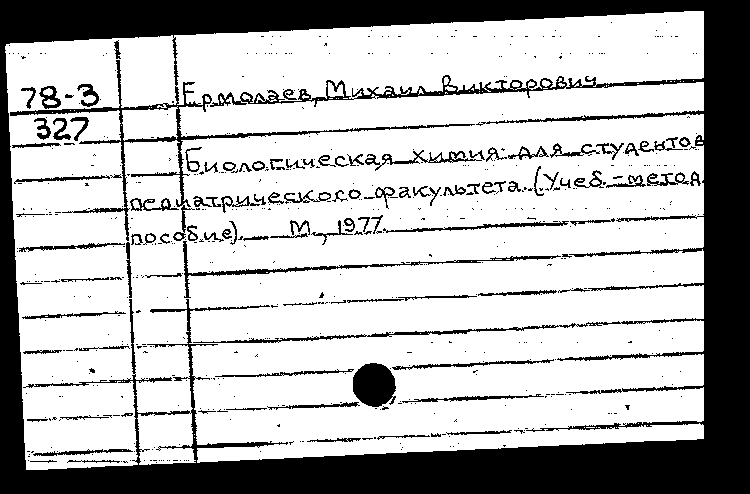 78-3
327
Ермолаев, Михаил Викторович
Биологическая химия для студентов
педиатрического факультета. (Учеб.-метод.
пособие). М., 1977.